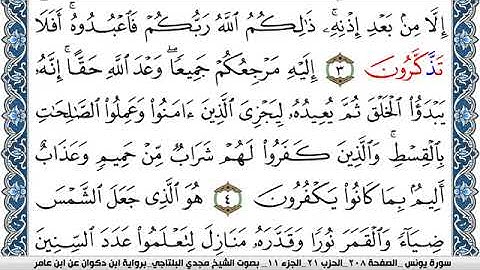 إِلَّا مِنۢ بَعْدِ إِذْنِهِۦۚ ذَٰلِكُمُ ٱللَّهُ رَبُّكُمْ فَٱعْبُدُوهُۚ أَفَلَا
تَذَّكَّرُونَ ٣ إِلَيْهِ مَرْجِعُكُمْ جَمِيعٗاۖ وَعْدَ ٱللَّهِ حَقًّاۚ إِنَّهُۥ
يَبْدَؤُاْ ٱلْخَلْقَ ثُمَّ يُعِيدُهُۥ لِيَجْزِيَ ٱلَّذِينَ ءَامَنُواْ وَعَمِلُواْ ٱلصَّٰلِحَٰتِ
بِٱلْقِسْطِۚ وَٱلَّذِينَ كَفَرُواْ لَهُمْ شَرَابٞ مِّنْ حَمِيمٖ وَعَذَابٌ
أَلِيمُۢ بِمَا كَانُواْ يَكْفُرُونَ ٤ هُوَ ٱلَّذِي جَعَلَ ٱلشَّمْسَ
ضِيَآءٗ وَٱلْقَمَرَ نُورٗا وَقَدَّرَهُۥ مَنَازِلَ لِتَعْلَمُواْ عَدَدَ ٱلسِّنِينَ
سورة يونس _الصفحة ٢٠٨_ الحزب ٢١_الجزء ١١_ بصوت الشيخ مجدي البلتاجي_برواية ابن ذكوان عن ابن عامر